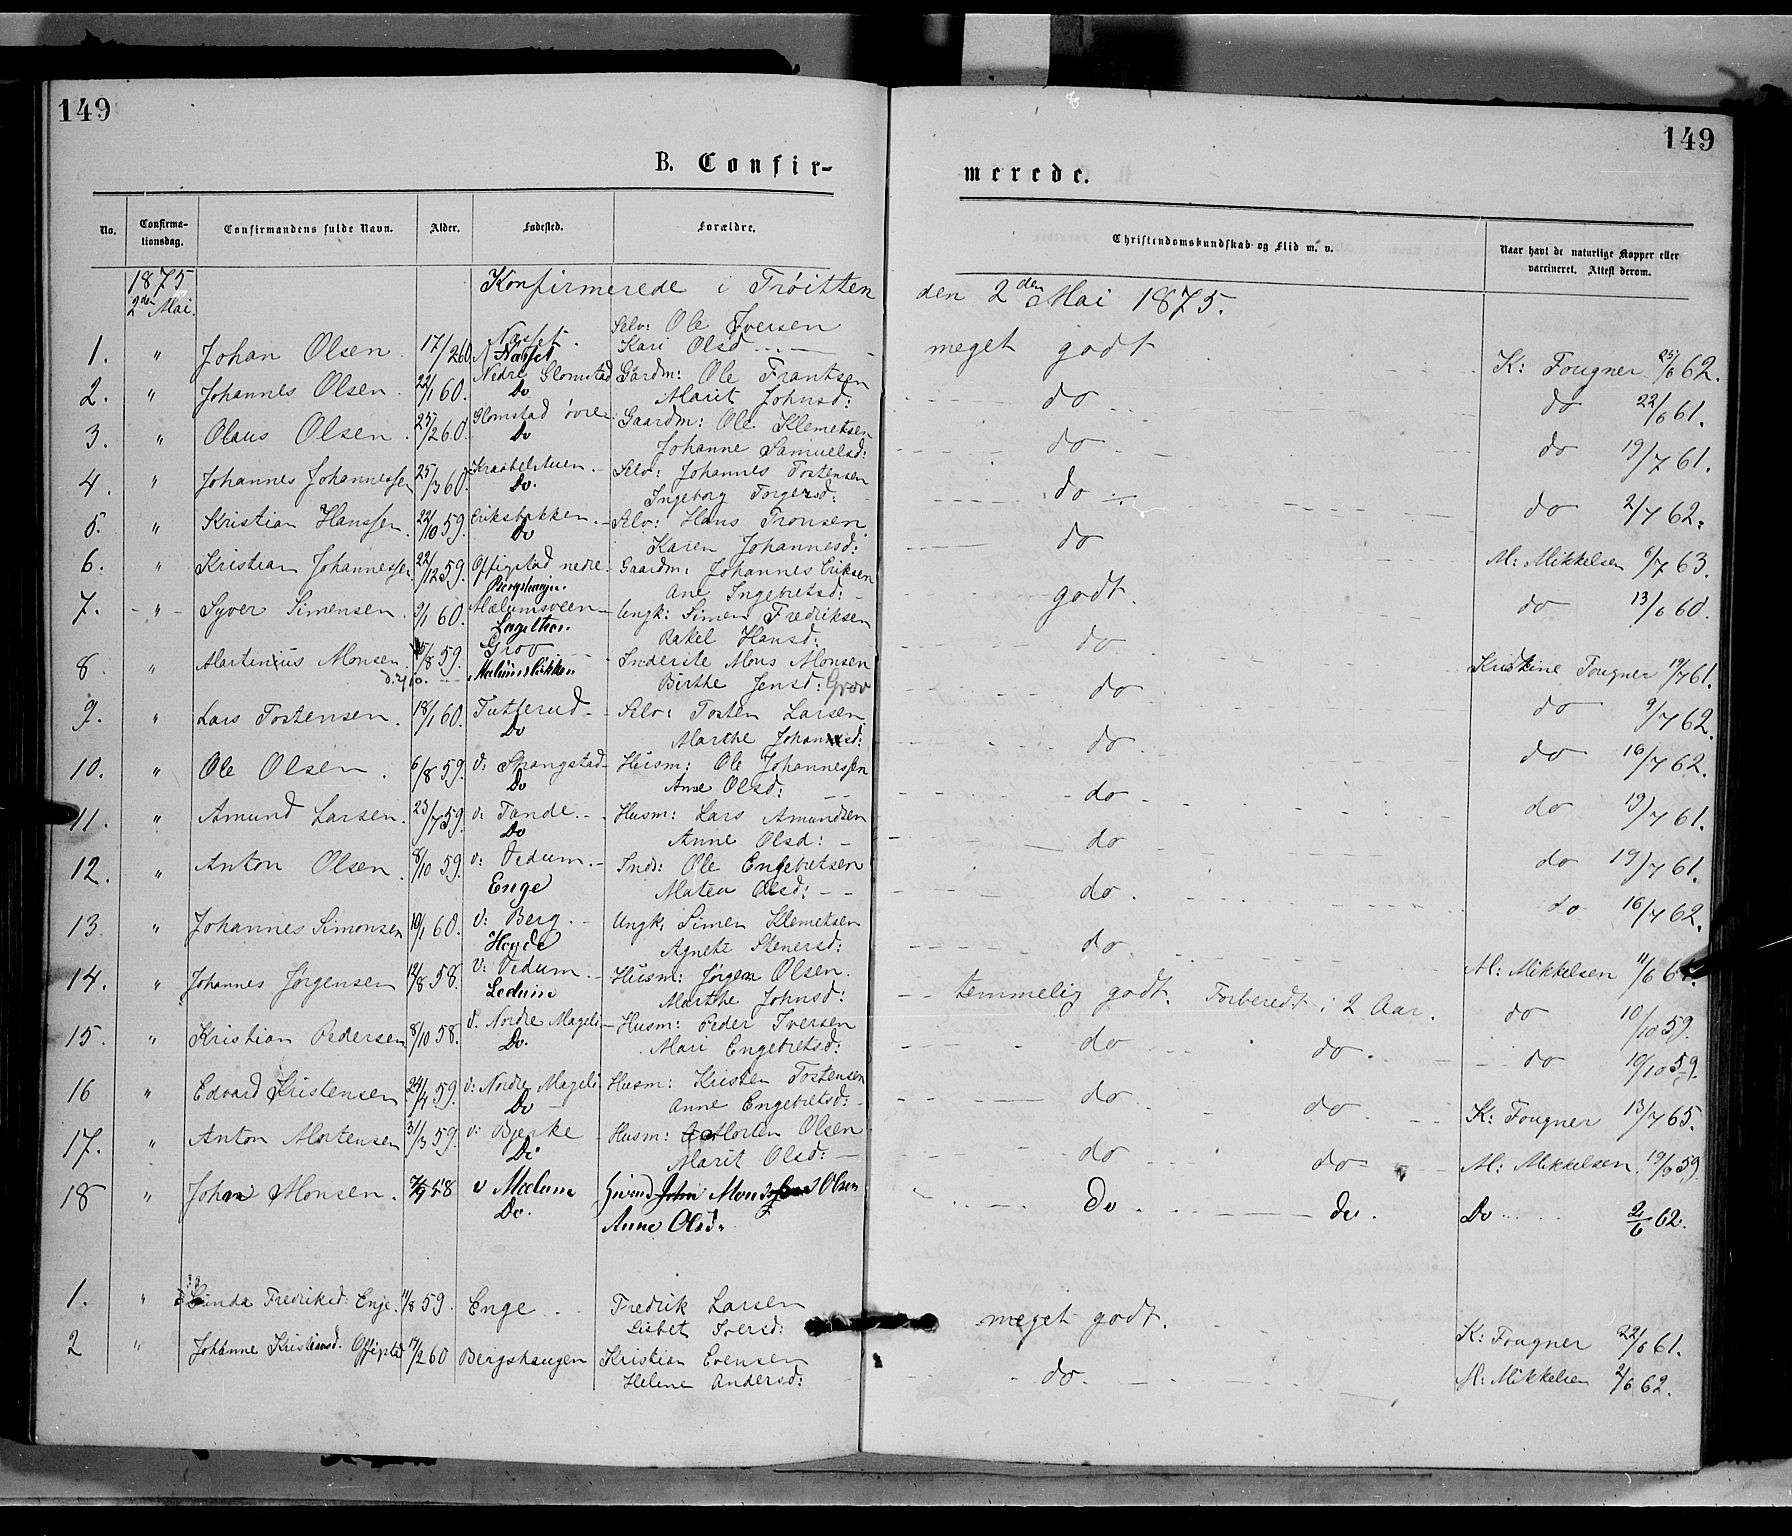 149
149
B. Confir-
merede.
No.
Confirma-
tionsdag.
Confirmandens fulde Navn.
Alder.
Fødested.
Forældre.
Christendomskundskab og Flid m. v.
Naar havt de naturlige Kopper eller
vaccineret. Attest derom.
1875
2den Mai.
Konfirmerede i Trøitten
den 2den Mai 1875.
1. " Johan Olsen. 17/2 60 Selv: Ole Iversen
Kari Olsd meget godt K: Fougner 62.
2. " Johannes Olsen. 22/1 60. Nedre Glomstad Gårdm: Ole Frantsen
Do Marit Johnsd: do do 22/6 61.
3. " Olaus Olsen. 25/2 60. Glomstad øvre Gaardm: Ole Klemetsen
Do Johanne Samuelsd: do do 19/7 61.
4. " Johannes Johannessen 25/3 60. Selv: Johannes Tostensen
Do. Ingeborg Torgersd: do do 2/7 62.
5. " Kristian Hanssen 22/10 59. Eriksbakken. Selv: Hans Tronsen
Do Karen Johannesd: do M: Mikkelsen 6/7 63.
6. " Kristian Johannessen 22/12 59. Offigstad nedre Gaardm: Johannes Eriksen
Ane Ingebretsd: godt. do 13/6 60.
7. " Syver Simensen. 9/1 60. Mælumsveen Ungk: Simen Fredriksen
Rakel Hansd: do Kristine Fougner 19/7 61.
8 " Martinius Monsen. /8 59. Grov Inderste Mons Monsen
Mælumsløkken Birthe Jensd: Grov do do 9/7 62.
9. " Lars Tostensen. 18/1 60. Tutterud Selv: Tosten Larsen
Do Marthe Johansd: do. do 16/7 62.
10. " Ole Olsen. 6/8 59. v: Skangstad Husm: Ole Johannessen
Do Anne Olsd: do do 19/7 61.
11. " Amund Larsen. 23/7 59. v: Tande. Husm: Lars Amundsen
Do Anne Olsd: do do 19/7 61.
12. " Anton Olsen. 8/10 59. v: Vedum. Inds: Ole Engebretsen
Enge Mateu Olsd: do. do 16/7 62.
13 " Johannes Simonsen 10/1 60. v: Berg. Ungk: Simen Klemetsen
Agnete Stenersd: do. M: Mikkelsen 11/6
14. " Johannes Jørgensen 12/8 58. v: Vedum. Husm: Jørgen Olsen.
Marthe Johnsd: temmelig godt. Forberedt i 2 Aar. do 10/10 59.
15. " Kristian Pedersen 8/10 58. v. Nordre Mageli Husm: Peder Iversen
Do. Mari Engebretsd: do do. do 10/10 59.
16 " Edvard Kristensen 24/4 59. v: Nordre Mageli Husm: Kristen Tostensen
Do Anne Engebretsd: do do K: Fougner 13/7 65.
17. " Anton Mortensen 31/3 59. v: Bjerke Husm: Morten Olsen
Do Marit Olsd: do do M: Mikkelsen 19/9 59
18 " John Monsen. 58 v Mælum Mons Olsen
Do. Anne Olsd. Do do. Do 2/6 62.
1. " Fredriksd: Enje. 11/8 59. Enge Fredrik Larsen
Lisbet Iversd: meget godt. K: Fougner 22/6 61.
2 " Johanne Kristiansd. Offigstad 17/2 60 Bergshaugen Kristian Evensen
Helene Andersd: do. M: Mikkelsen 2/6 62.